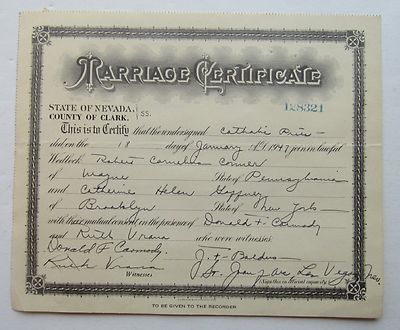 MARRIAGE CERTIFICATE
128321
STATE OF NEVADA,
COUNTY OF CLARK. SS.
This is to Certify that the undersigned Catholic Priest
did on the 18 day of January A.D. 1947 join in lawful
Wedlock Robert Cornelius Conner
of Wayne State of Pennsylvania
and Catherine Helen Gaffney
of Brooklyn State of New York
with their mutual consent in the presence of Donald F. Carmody
and Ruth Vrana who were witnesses.
Donald F Carmody J. F.
Ruth Vrana St. Joan of Arc Las Vegas, Nev.
Witnesses Sign in official capacity
TO BE GIVEN TO THE RECORDER